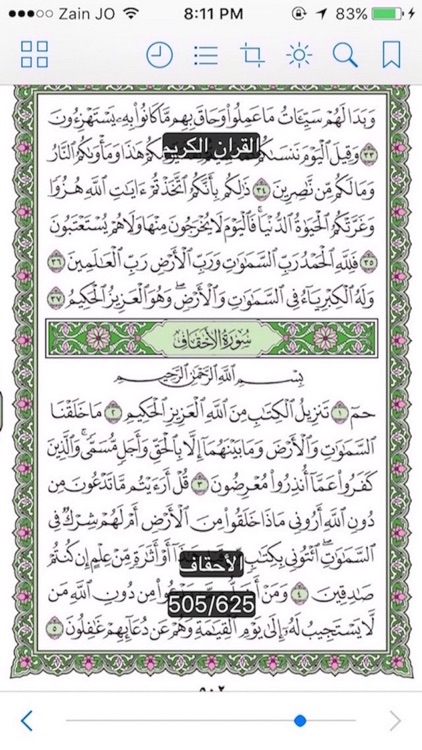 Zain JO 8:11 PM 83%
وَبَدَا لَهُمْ سَيِّئَاتُ مَا عَمِلُوا۟ وَحَاقَ بِهِم مَّا كَانُوا۟ بِهِۦ يَسْتَهْزِءُونَ
القرآن الكريم
٣٣ وَقِيلَ ٱلْيَوْمَ نَنسَىٰكُمْ هَٰذَا وَمَأْوَىٰكُمُ ٱلنَّارُ
وَمَا لَكُم مِّن نَّٰصِرِينَ ٣٤ ذَٰلِكُم بِأَنَّكُمُ ٱتَّخَذْتُمْ ءَايَٰتِ ٱللَّهِ هُزُوًا
وَغَرَّتْكُمُ ٱلْحَيَوٰةُ ٱلدُّنْيَا ۚ فَٱلْيَوْمَ لَا يُخْرَجُونَ مِنْهَا وَلَا هُمْ يُسْتَعْتَبُونَ
٣٥ فَلِلَّهِ ٱلْحَمْدُ رَبِّ ٱلسَّمَٰوَٰتِ وَرَبِّ ٱلْأَرْضِ رَبِّ ٱلْعَٰلَمِينَ ٣٦
وَلَهُ ٱلْكِبْرِيَآءُ فِى ٱلسَّمَٰوَٰتِ وَٱلْأَرْضِ ۖ وَهُوَ ٱلْعَزِيزُ ٱلْحَكِيمُ ٣٧
سُورَةُ الأَحْقَافِ
بِسْمِ ٱللَّهِ ٱلرَّحْمَٰنِ ٱلرَّحِيمِ
حمٓ ١ تَنزِيلُ ٱلْكِتَٰبِ مِنَ ٱللَّهِ ٱلْعَزِيزِ ٱلْحَكِيمِ ٢ مَا خَلَقْنَا
ٱلسَّمَٰوَٰتِ وَٱلْأَرْضَ وَمَا بَيْنَهُمَآ إِلَّا بِٱلْحَقِّ وَأَجَلٍ مُّسَمًّى ۚ وَٱلَّذِينَ
كَفَرُوا۟ عَمَّآ أُنذِرُوا۟ مُعْرِضُونَ ٣ قُلْ أَرَءَيْتُم مَّا تَدْعُونَ مِن
دُونِ ٱللَّهِ أَرُونِى مَاذَا خَلَقُوا۟ مِنَ ٱلْأَرْضِ أَمْ لَهُمْ شِرْكٌ فِى
ٱلسَّمَٰوَٰتِ ۖ ٱئْتُونِى بِكِتَٰبٍ أَوْ أَثَٰرَةٍ مِّنْ عِلْمٍ إِن كُنتُمْ
الأحقاف
صَٰدِقِينَ ٤ وَمَنْ مِن دُونِ ٱللَّهِ مَن
505/625
لَّا يَسْتَجِيبُ لَهُۥٓ إِلَىٰ يَوْمِ ٱلْقِيَٰمَةِ وَهُمْ عَن دُعَآئِهِمْ غَٰفِلُونَ ٥
٥٠٢